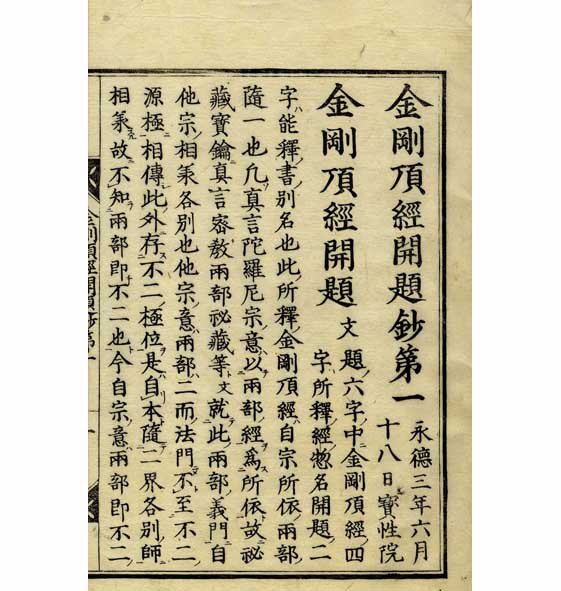 金剛頂經開題鈔第一
永德三年六月
十八日寶性院
金剛頂經開題 文
題六字中金剛頂經四
字所釋經惣名開題二
字能釋書別名也此所釋金剛頂經自宗所依兩部
隨一也凡真言陀羅尼宗意以兩部經爲所依故祕
藏寶鑰真言密教兩部祕藏等文就此兩部義門自
他宗相承各別也他宗意兩部二而法門不至不二
源極相傳此外存不二極位是自本隨二界各別師
相承故不知兩部即不二也今自宗意兩部即不二